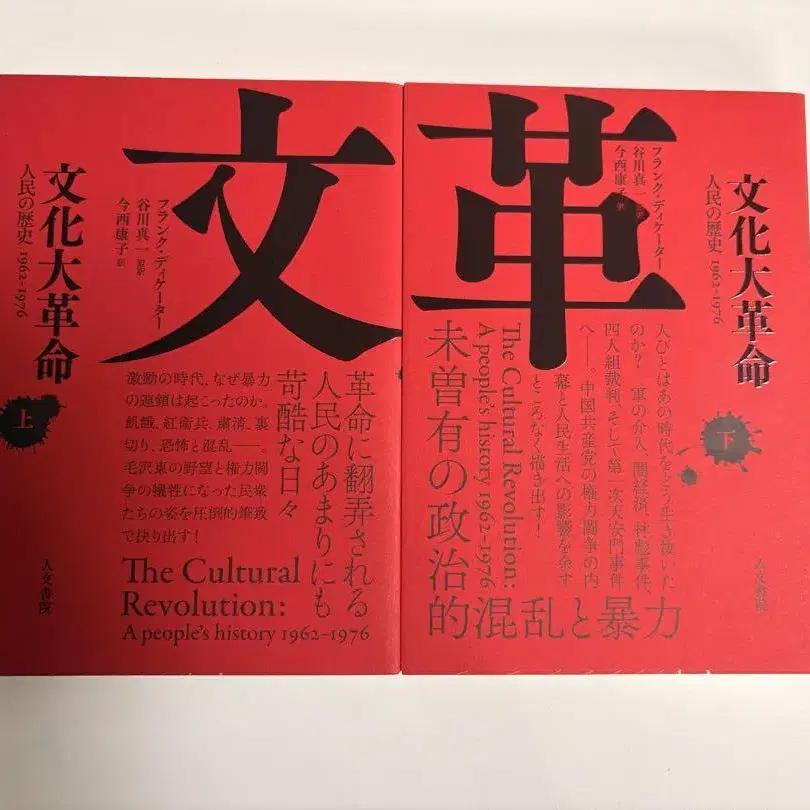 文
文化大革命
人民の歴史 1962-1976
上
フランク・ディケーター
谷川真一 監訳
今西康子 訳
革命に翻弄される
人民のあまりにも
苛酷な日々
激動の時代、なぜ暴力
の連鎖は起こったのか。
飢餓、紅衛兵、粛清、裏
切り、恐怖と混乱――。
毛沢東の野望と権力闘
争の犠牲になった民衆
たちの姿を圧倒的筆致
で抉り出す!
The Cultural
Revolution:
A people's history 1962-1976
人文書院
革
文化大革命
人民の歴史 1962-1976
下
フランク・ディケーター
谷川真一
今西康子 訳
人びとはあの時代をどう生き抜いた
のか? 軍の介入、闇経済、林彪事件、
四人組裁判、そして第一次天安門事件
へ――。中国共産党の権力闘争の内
幕と人民生活への影響を余す
ところなく描き出す!
The Cultural Revolution:
A people's history 1962-1976
未曽有の政治的混乱と暴力
人文書院